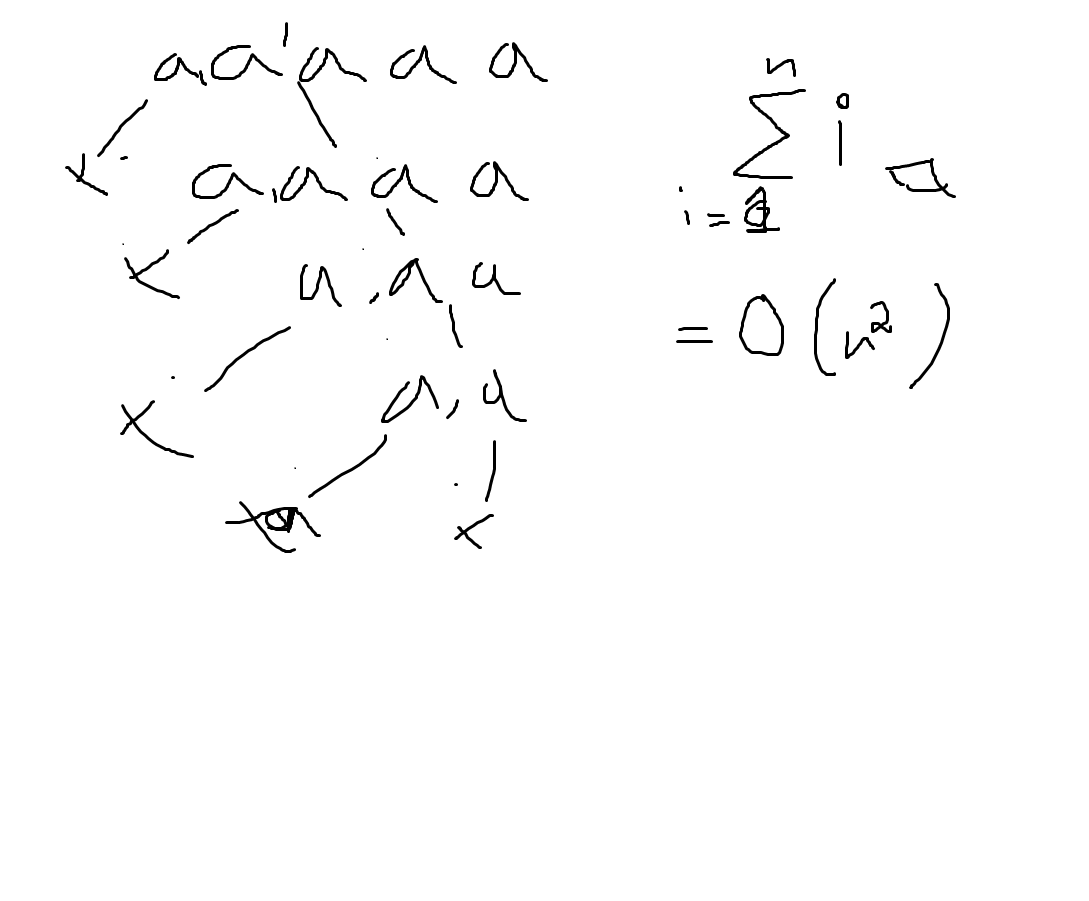 a, a' a a a
x a, a a a
x a, a, a
x a, a
x
n
∑ i a
i = 1
= O(n²)